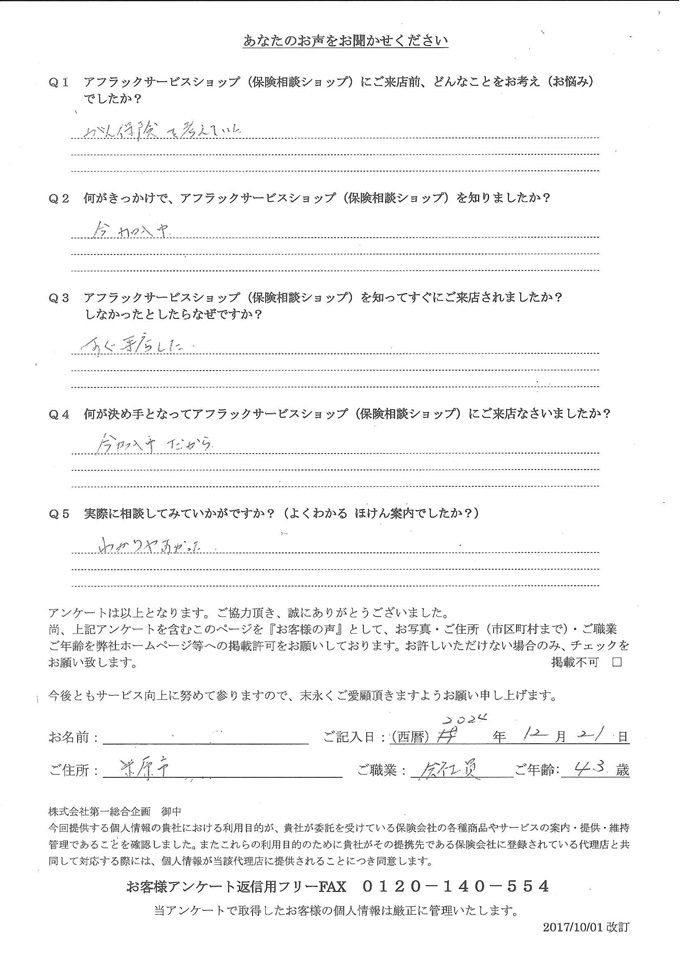 あなたのお声をお聞かせください
Q1 アフラックサービスショップ（保険相談ショップ）にご来店前、どんなことをお考え（お悩み）
でしたか？
がん保険を考えていた
Q2 何がきっかけで、アフラックサービスショップ（保険相談ショップ）を知りましたか？
今加入中
Q3 アフラックサービスショップ（保険相談ショップ）を知ってすぐにご来店されましたか？
しなかったとしたらなぜですか？
すぐ来店した
Q4 何が決め手となってアフラックサービスショップ（保険相談ショップ）にご来店なさいましたか？
今加入中だから
Q5 実際に相談してみていかがですか？（よくわかる ほけん案内でしたか？）
わかりやすかった
アンケートは以上となります。ご協力頂き、誠にありがとうございました。
尚、上記アンケートを含むこのページを『お客様の声』として、お写真・ご住所（市区町村まで）・ご職業
ご年齢を弊社ホームページ等への掲載許可をお願いしております。お許しいただけない場合のみ、チェックを
お願い致します。 掲載不可 □
今後ともサービス向上に努めて参りますので、末永くご愛顧頂きますようお願い申し上げます。
2024
お名前： ご記入日：（西暦） 年 12 月 21 日
ご住所： 米原市 ご職業： 会社員 ご年齢： 43 歳
株式会社第一総合企画 御中
今回提供する個人情報の貴社における利用目的が、貴社が委託を受けている保険会社の各種商品やサービスの案内・提供・維持
管理であることを確認しました。またこれらの利用目的のために貴社がその提携先である保険会社に登録されている代理店と共
同して対応する際には、個人情報が当該代理店に提供されることにつき同意します。
お客様アンケート返信用フリーFAX 0120－140－554
当アンケートで取得したお客様の個人情報は厳正に管理いたします。
2017/10/01 改訂